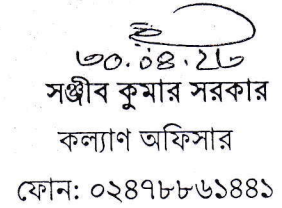 ৩০.০৪.২৮
সঞ্জীব কুমার সরকার
কল্যাণ অফিসার
ফোন: ০২৪৭৮৮৬১৪৪১